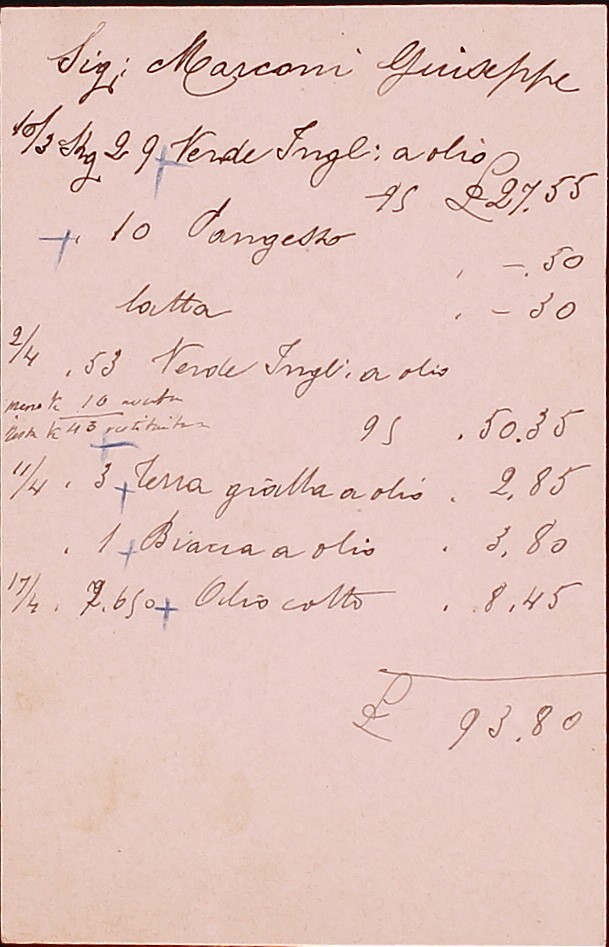 Sig: Marconi Giuseppe
10/3 Kg 29 + Verde Ingl: a olio
95 £ 27.55
+ . 10 Pangesso
. - . 50
latta . - 30
2/4 . 53 Verde Ingl: a olio
meno K 10
resta K 43
95 . 50.35
11/4 . 3 + Terra gialla a olio . 2,85
. 1 + Biacca a olio . 3,80
17/4 . 7.650 + Olio cotto . 8.45
£ 93.80